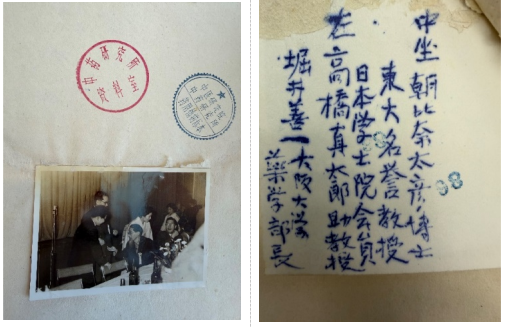 研究所
資料室
中坐 朝比奈太彦博士
東大名誉教授
日本学士院会員
左 高橋真太郎助教授
堀井善一 大阪大学
藥学部長
98